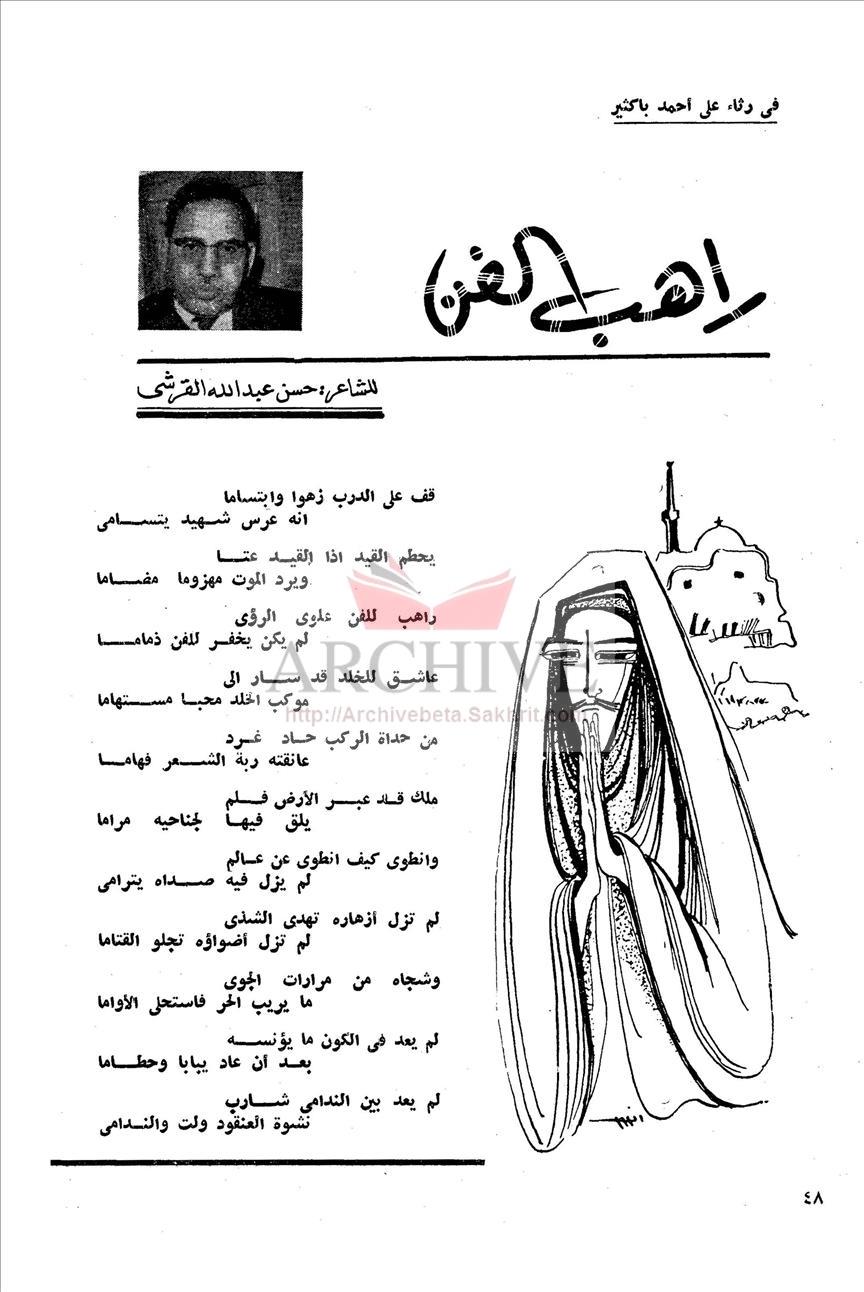 فى رثاء على أحمد باكثير
راهب الفن
للشاعر: حسن عبدالله القرشى
قف على الدرب زهوا وابتساما
انه عرس شهيد يتسامى
يحطم القيد اذا القيد عتا
ويرد الموت مهزوما مضاما
راهب للفن علوى الرؤى
لم يكن يخفر للفن ذماما
عاشق للخلد قد سار الى
موكب الخلد محبا مستهاما
من حداة الركب حاد غرد
عانقته ربة الشعر فهاما
ملك قد عبر الأرض فلم
يلق فيها لجناحيه مراما
وانطوى كيف انطوى عن عالم
لم يزل فيه صداه يترامى
لم تزل أزهاره تهدى الشذى
لم تزل أضواؤه تجلو القتاما
وشجاه من مرارات الجوى
ما يريب الحر فاستحلى الأواما
لم يعد فى الكون ما يؤنسه
بعد أن عاد يبابا وحطاما
لم يعد بين الندامى شارب
نشوة العنقود ولت والندامى
ARCHIVE
http://Archivebeta.Sakhrit.com
٤٨